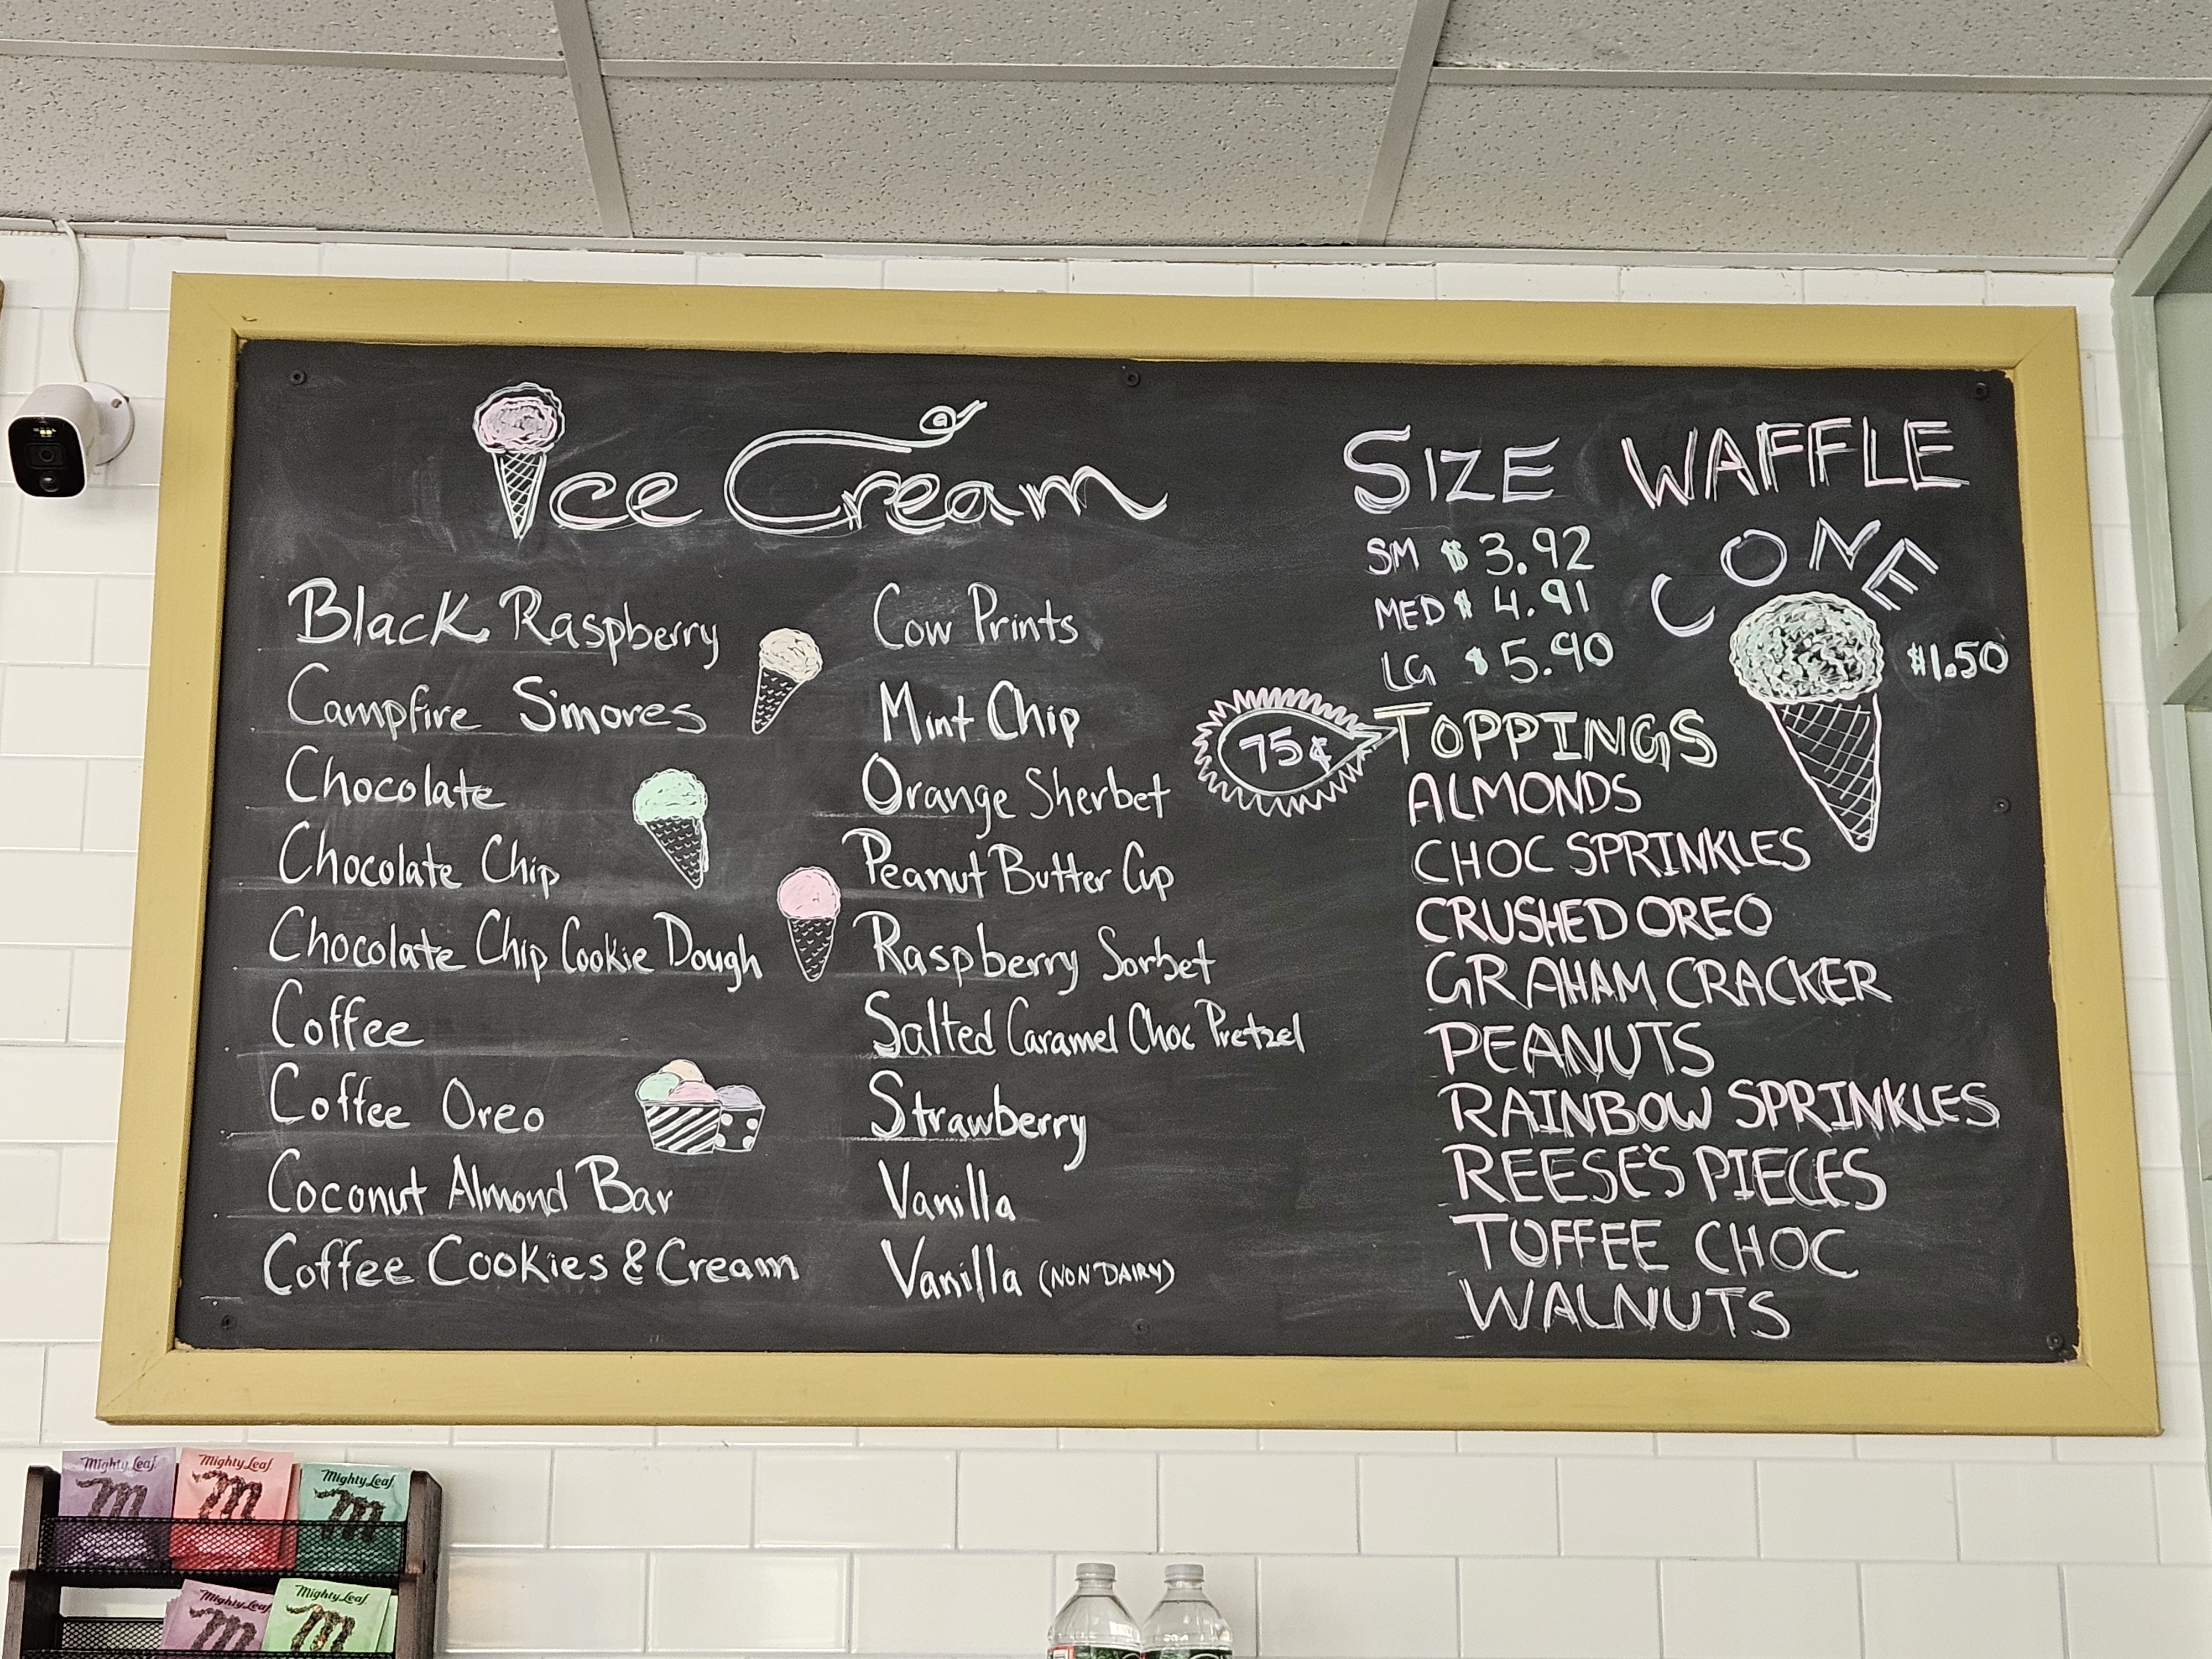 Ice Cream
Black Raspberry
Campfire S'mores
Chocolate
Chocolate Chip
Chocolate Chip Cookie Dough
Coffee
Coffee Oreo
Coconut Almond Bar
Coffee Cookies & Cream
Cow Prints
Mint Chip
Orange Sherbet
Peanut Butter Cup
Raspberry Sorbet
Salted Caramel Choc Pretzel
Strawberry
Vanilla
Vanilla (NON DAIRY)
SIZE
SM $3.92
MED $4.91
LG $5.90
WAFFLE
CONE
$1.50
75¢
TOPPINGS
ALMONDS
CHOC SPRINKLES
CRUSHED OREO
GRAHAM CRACKER
PEANUTS
RAINBOW SPRINKLES
REESE'S PIECES
TOFFEE CHOC
WALNUTS
Mighty Leaf
Mighty Leaf
Mighty Leaf
Mighty Leaf
Mighty Leaf